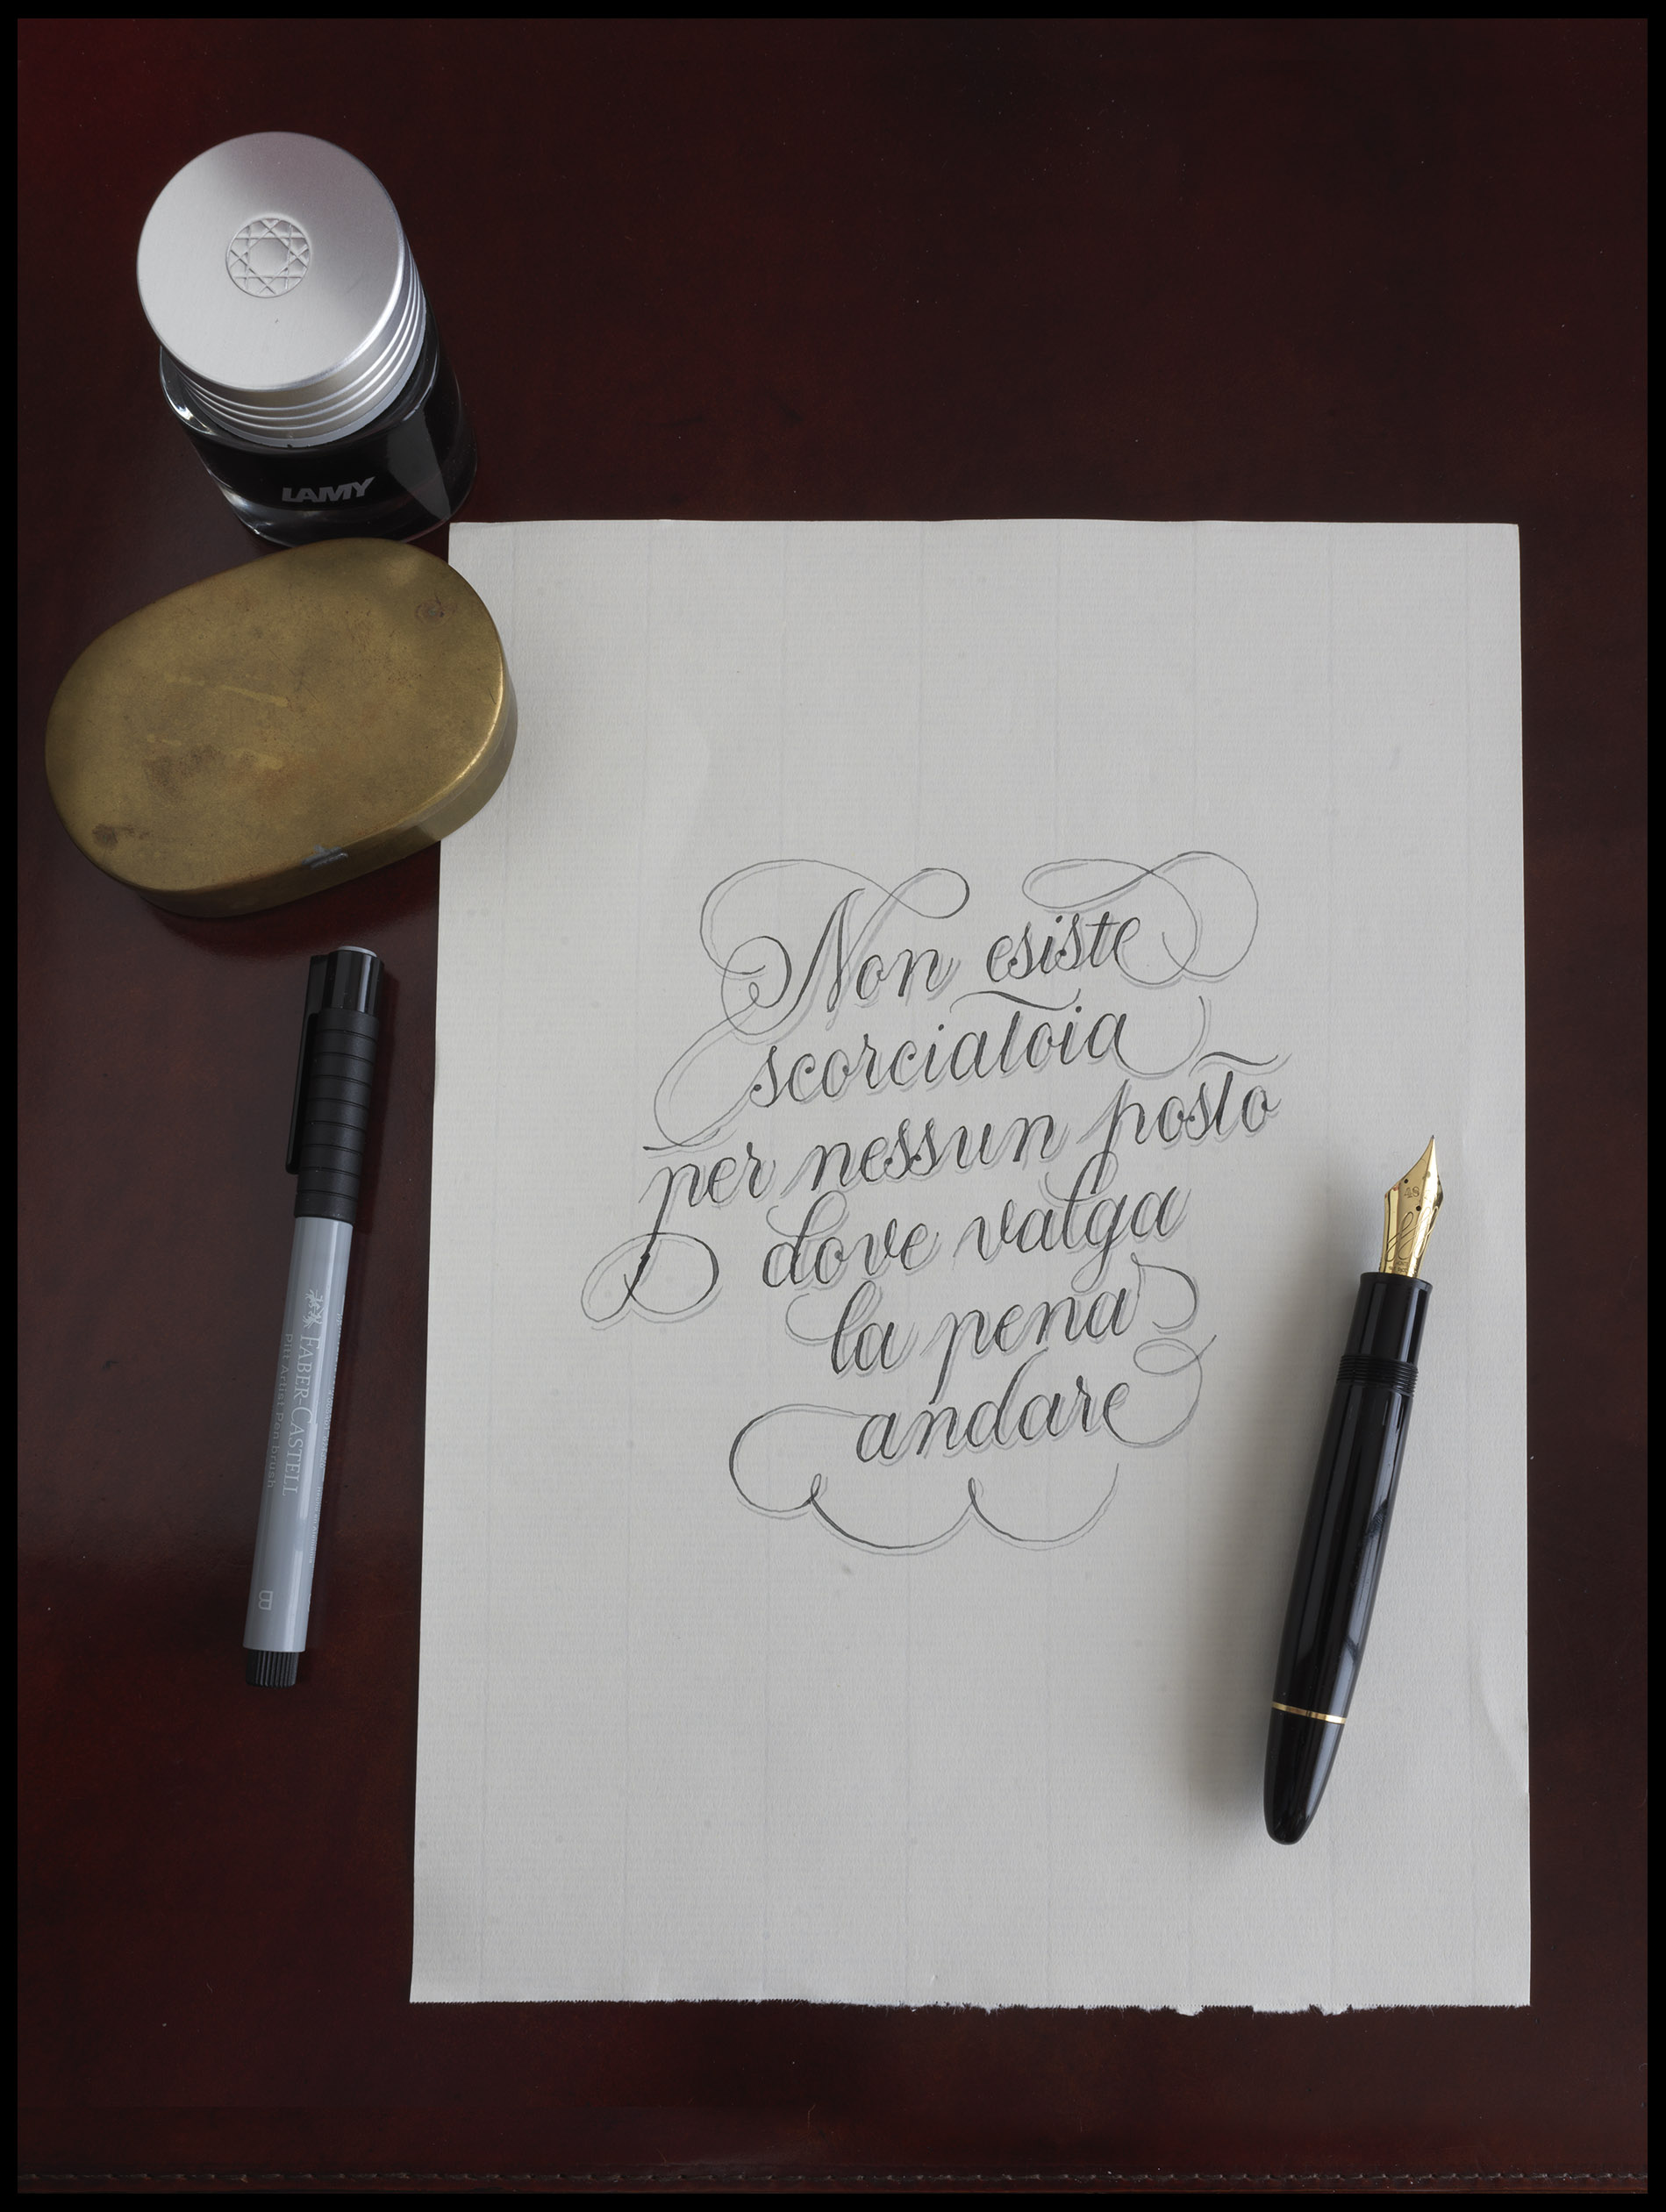 LAMY
Non esiste
scorciatoia
per nessun posto
dove valga
la pena
andare
FABER-CASTELL
Pitt Artist Pen brush
B